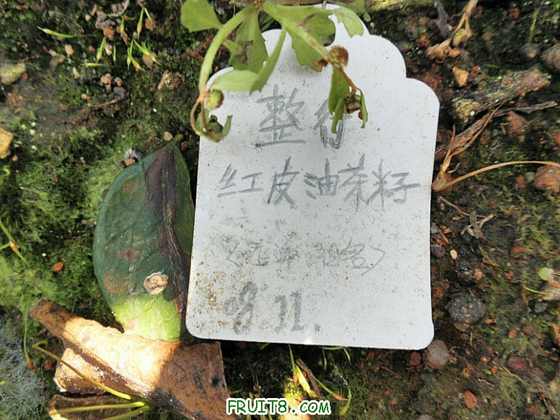 整行
红皮油茶籽
08 11.
FRUIT8.COM